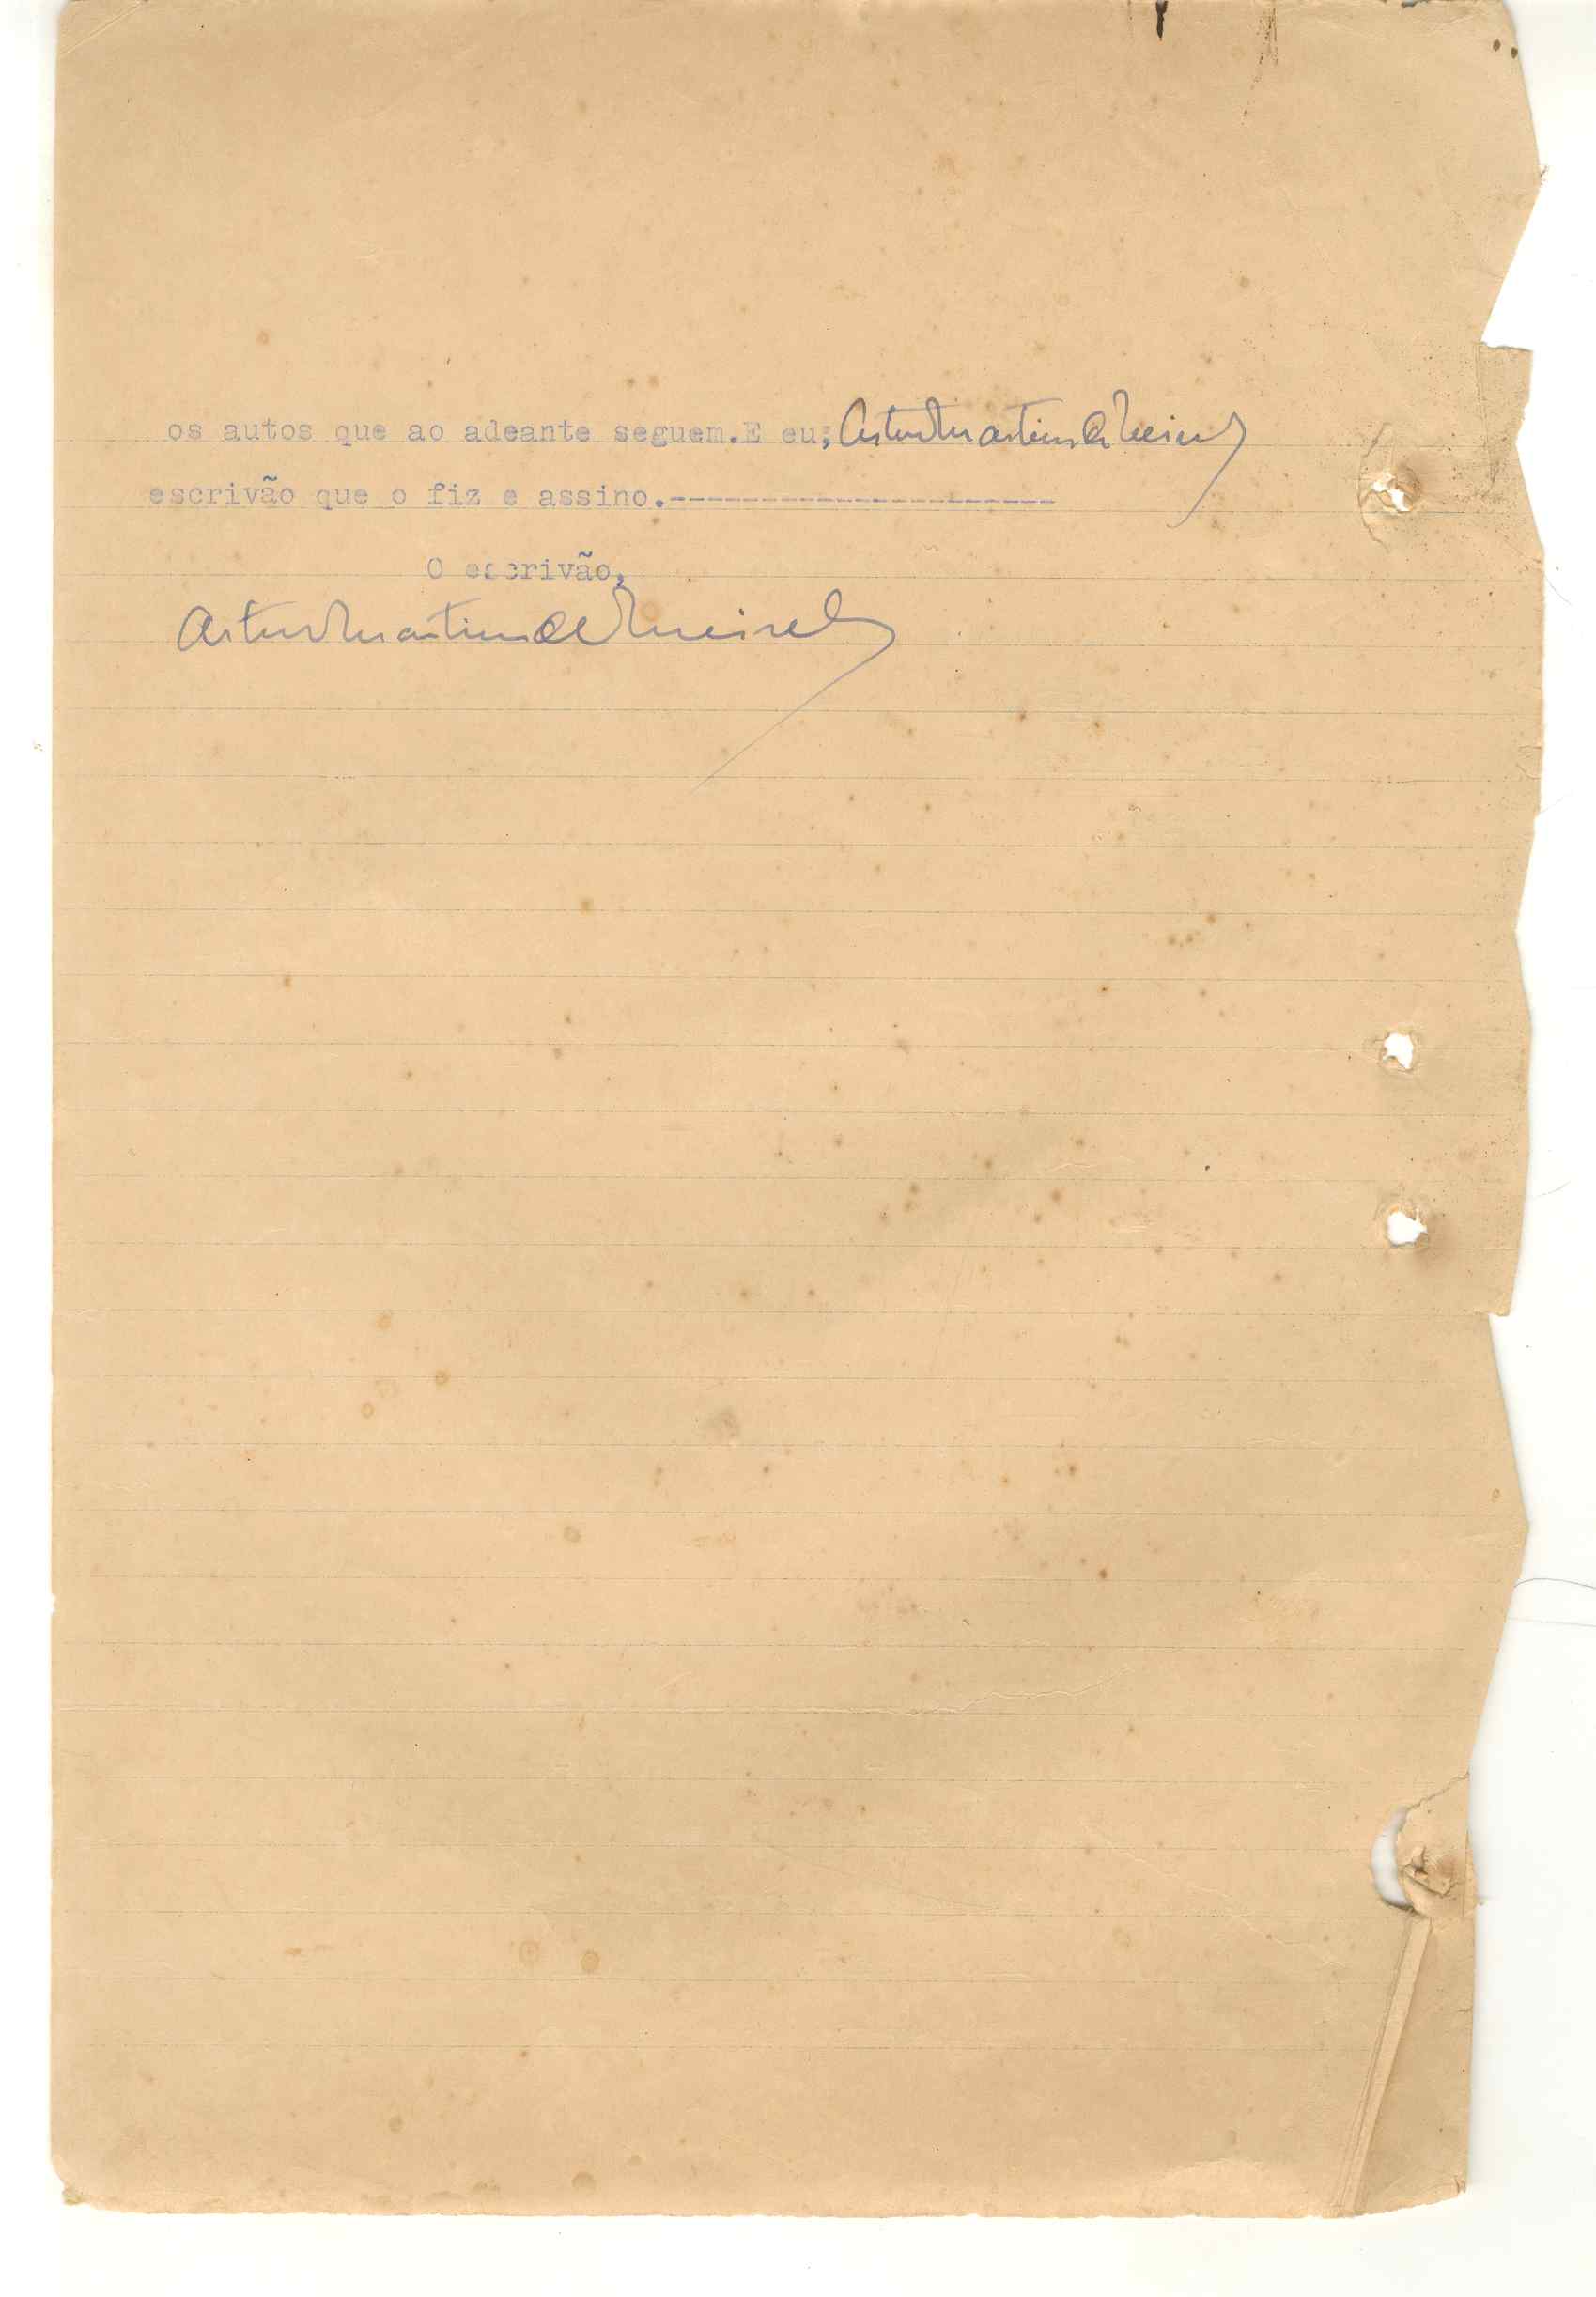 os autos que ao adeante seguem.E eu; Artur Martins de
escrivão que o fiz e assino.----------------------
O escrivão,
Artur Martins de